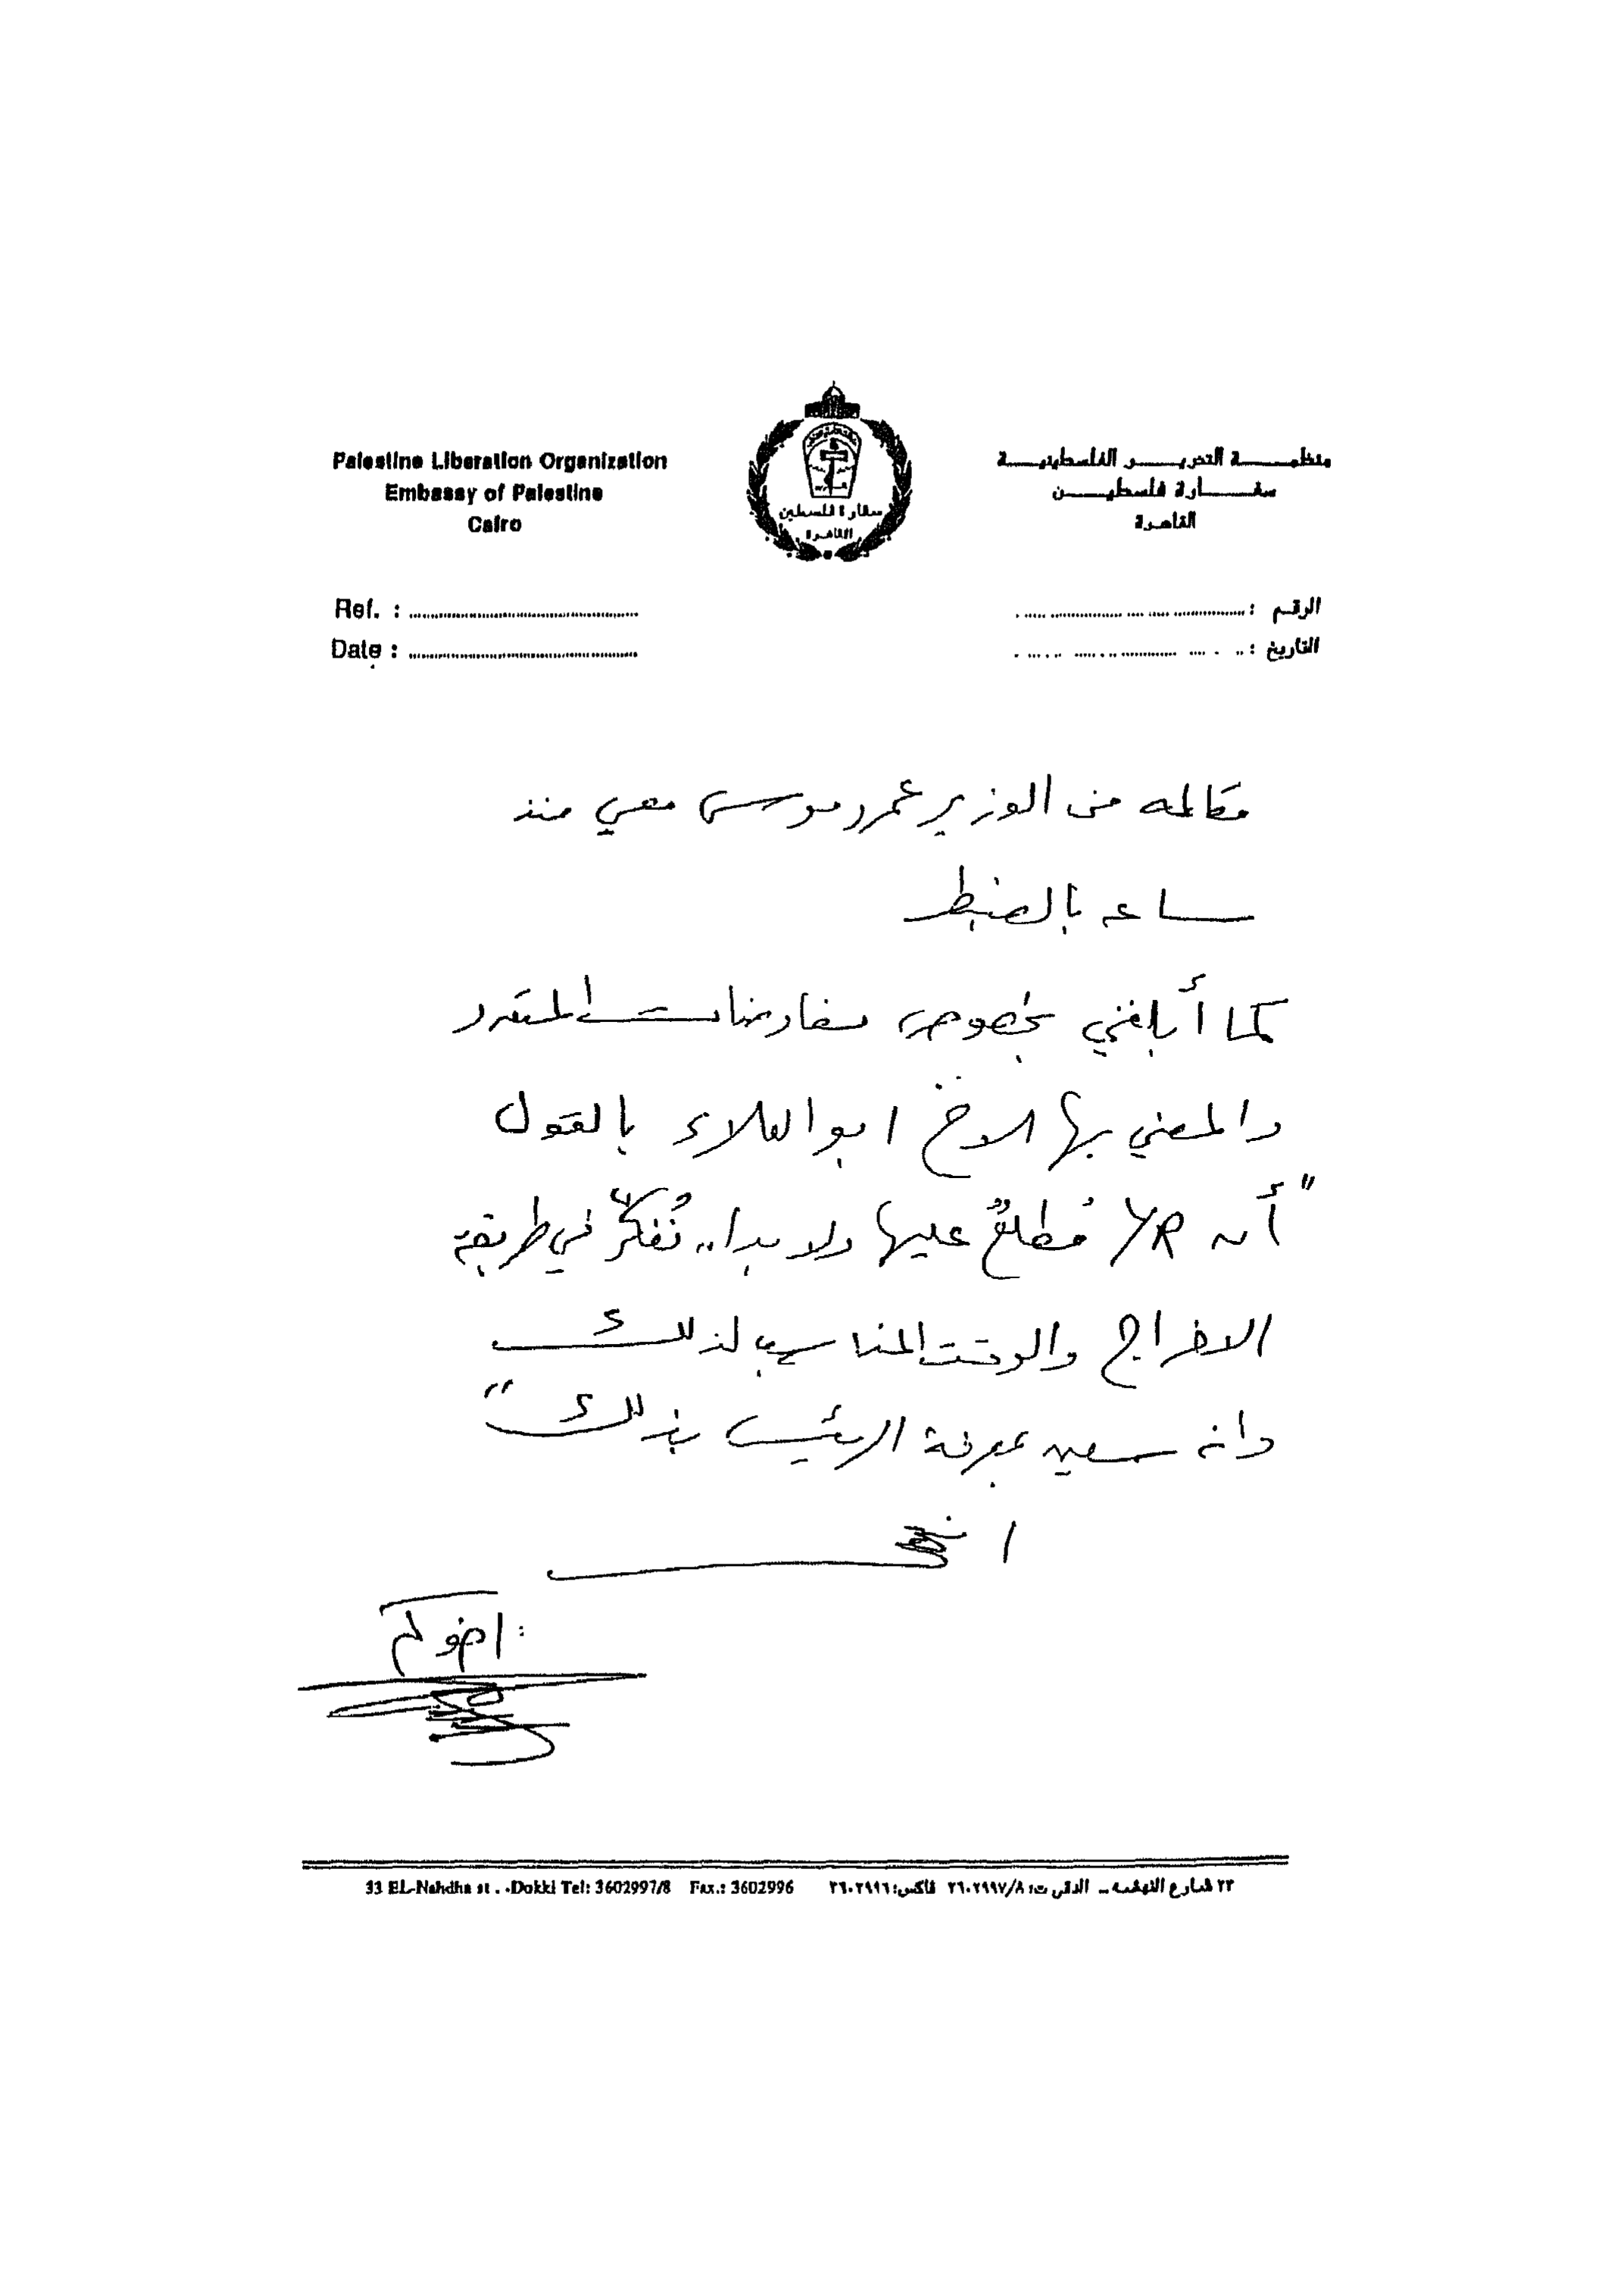 Palestine Liberation Organization
Embassy of Palestine
Cairo
منظمة التحرير الفلسطينية
سفارة فلسطين
القاهرة
سفارة فلسطين
القاهرة
Ref. :
Date :
الرقم :
التاريخ :
مكالمه من الوزير عمرو موسى معي منذ
ساعه بالضبط
كما أبلغني بخصوص مفاوضات
والمعني بها الاخ ابو العلاء بالقول
"أنه YR مُطلعٌ عليها ولا بد ان نُفكرّ في طريقة
الاخراج والوقت المناسب لذلك
وانه سعيد بمعرفة الرئيس بذلك"
: اخوكم
33 EL-Nahdha st . .Dokki Tel: 3602997/8 Fax.: 3602996
٣٣ شارع النهضه – الدقى ت: ٣٦٠٢٩٩٧/٨ فاكس: ٣٦٠٢٩٩٦